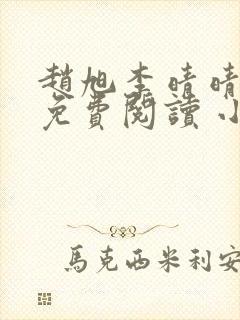 趙旭李晴晴
免費閱讀小
馬克西米利安